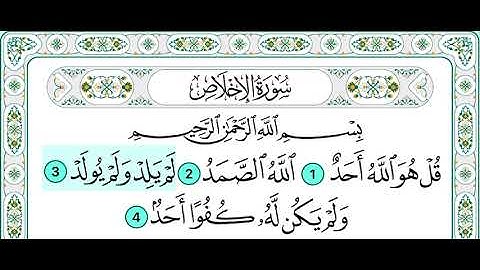 سُورَةُ الإِخْلَاصِ
بِسْمِ اللَّهِ الرَّحْمَٰنِ الرَّحِيمِ
قُلْ هُوَ اللَّهُ أَحَدٌ 1 اللَّهُ الصَّمَدُ 2 لَمْ يَلِدْ وَلَمْ يُولَدْ 3
وَلَمْ يَكُن لَّهُۥ كُفُوًا أَحَدٌۢ 4